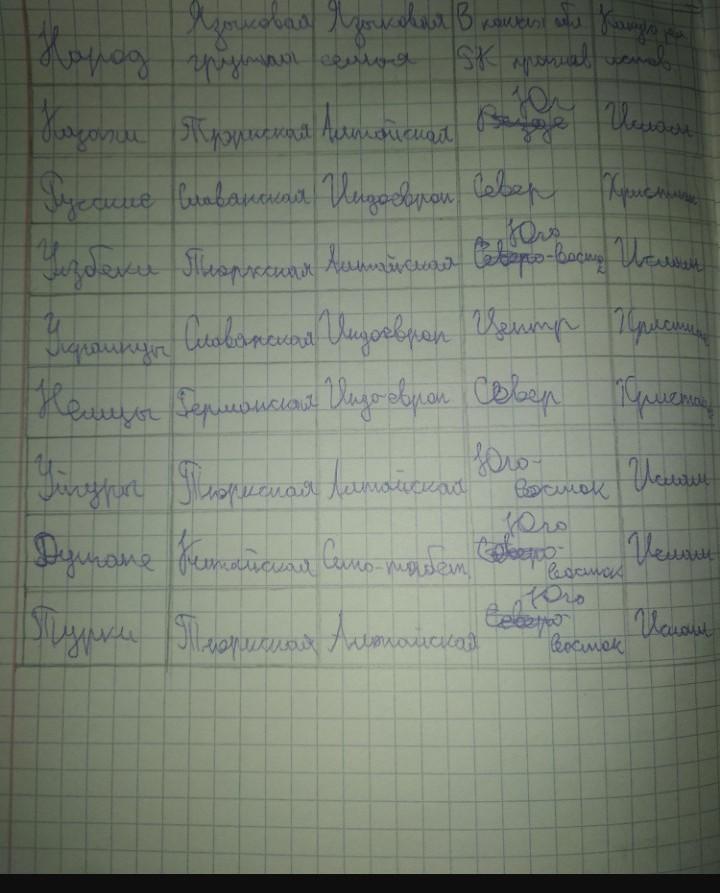 Народ Языковая группы Языковая семья В каких обл РК прожив Какую рел исповед
Казахи Тюркская Алтайская Юг Ислам
Русские Славянская Индоевроп Север Христиан
Узбеки Тюркская Алтайская Юго-восток Ислам
Украинцы Славянская Индоевроп Центр Христиан
Немцы Германская Индо-европ Север Христиан
Уйгуры Тюркская Алтайская Юго-восток Ислам
Дунгане Китайская Сино-тибет Юго-восток Ислам
Турки Тюркская Алтайская Юго-восток Ислам